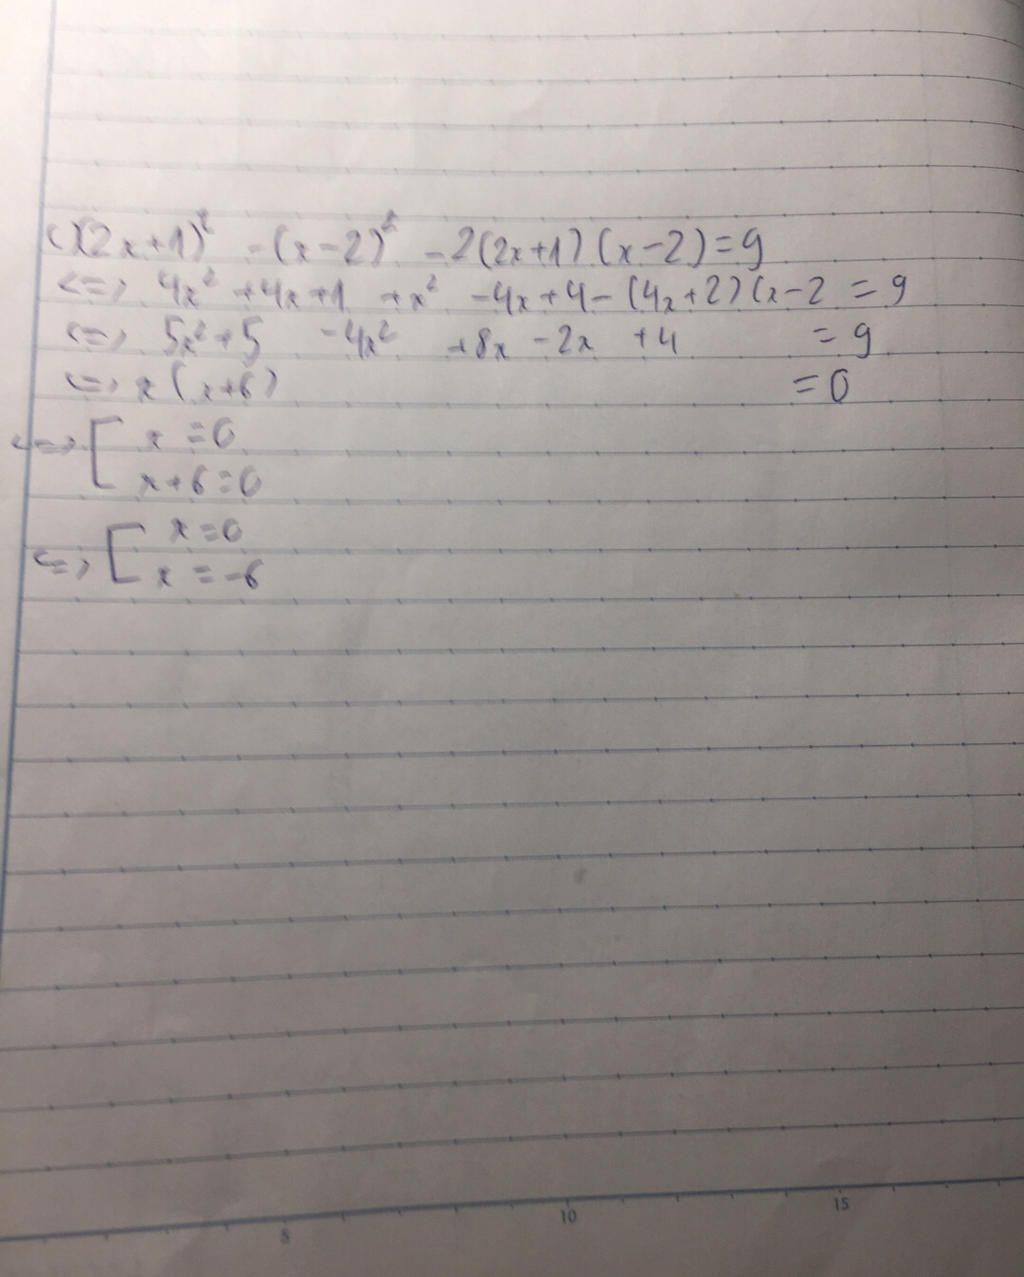 c)(2x+1)² -(x-2)² -2(2x+1)(x-2)=9
<=> 4x² +4x+1 +x² -4x+4-(4x+2)(x-2 =9
<=> 5x²+5 -4x² +8x -2x +4 =9
<=> x(x+6) =0
<=> [ x =0
x+6=0
<=> [ x=0
x =-6
5 10 15